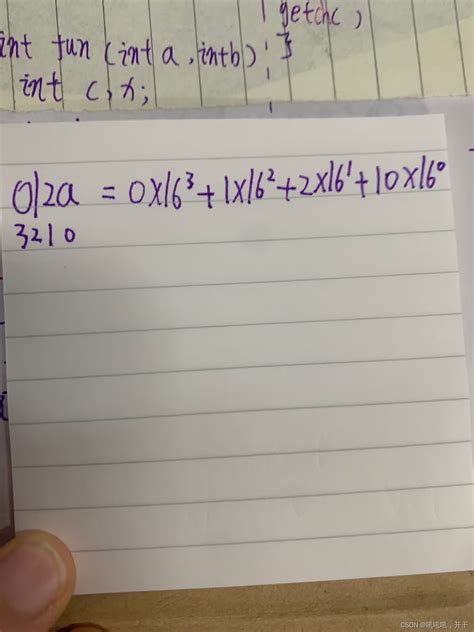 getchc )
int fun (int a , int b) ; }
int c, x;
012a = 0×16³+1×16²+2×16¹+10×16⁰
3210
CSDN @吼吼吼，开干